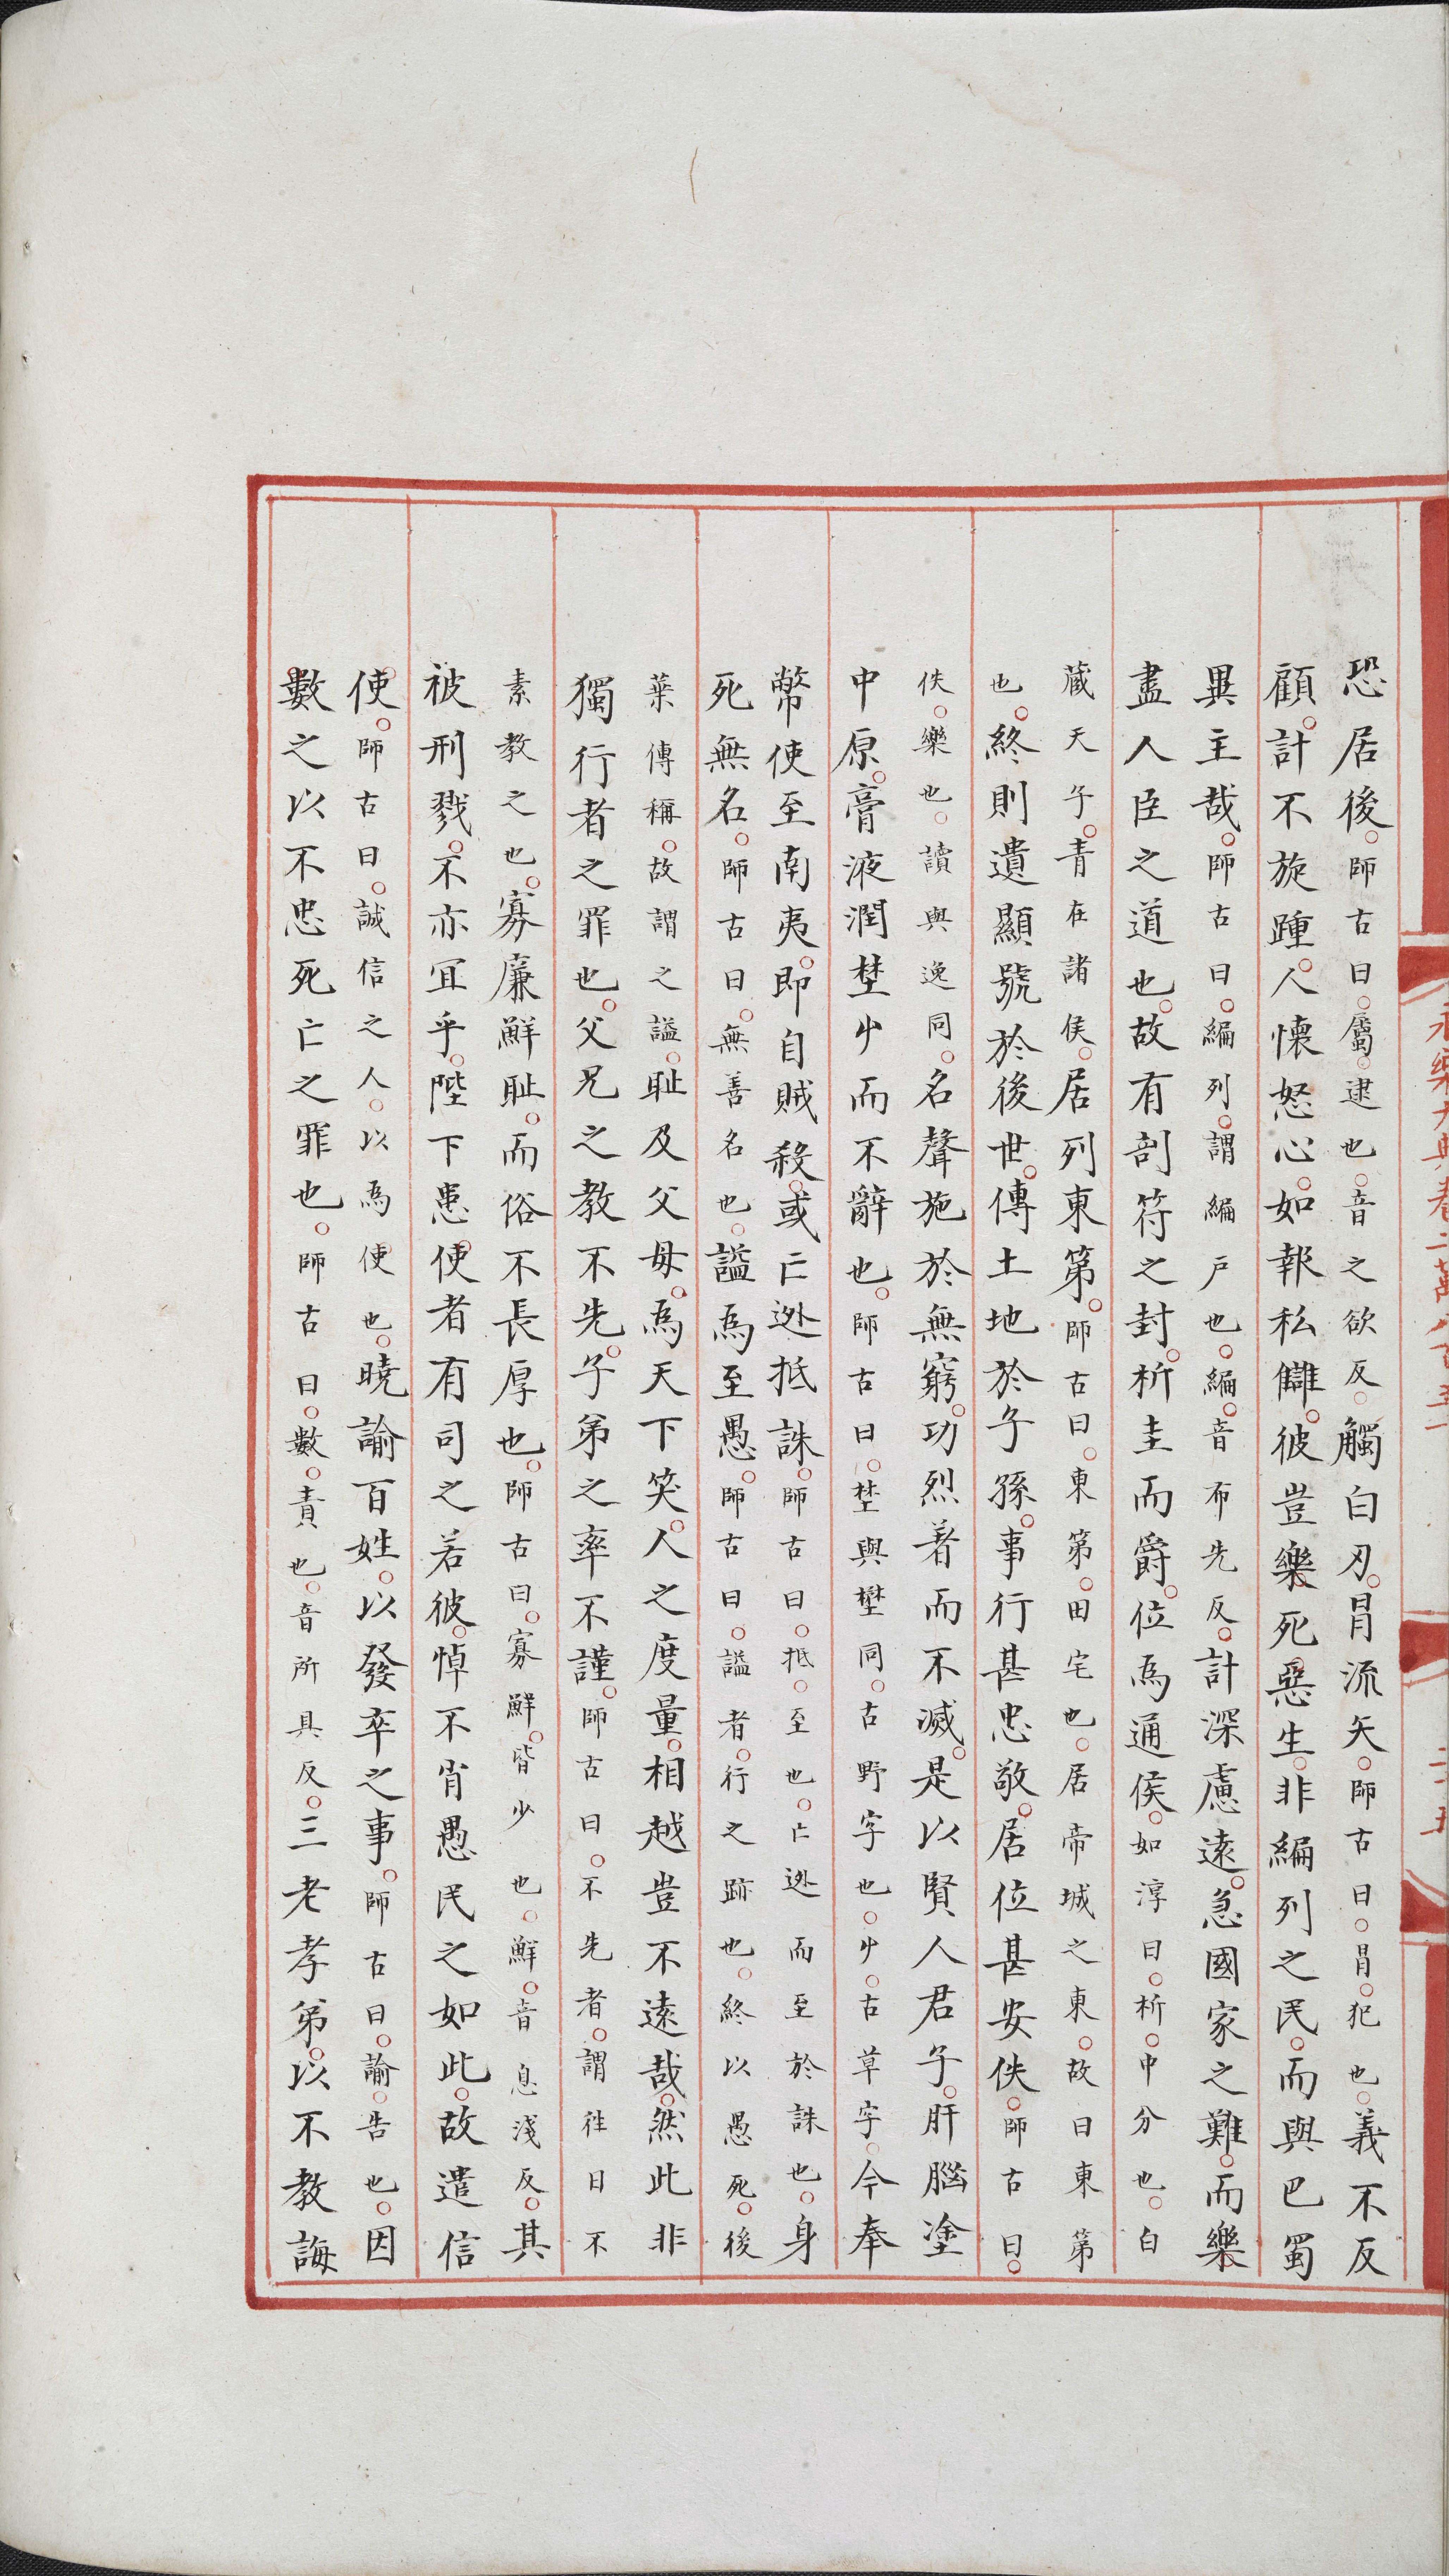 恐居後師古曰屬逮也音之欲反觸白刃冐流矢師古曰冐犯也義不反
顧計不旋踵人懷怒心如報私讎彼豈樂死惡生非編列之民而與巴蜀
異主哉師古曰編列謂編户也編音布先反計深慮遠急國家之難而樂
盡人臣之道也故有剖符之封析圭而爵位爲通侯如淳曰析中分也白
藏天子青在諸侯居列東第師古曰東第田宅也居帝城之東故曰東第
也終則遺顯號於後世傳土地於子孫事行甚忠敬居位甚安佚師古曰
佚樂也讀與逸同名聲施於無窮功烈著而不滅是以賢人君子肝腦塗
中原膏液潤埜屮而不辭也師古曰埜與壄同古野字也屮古草字今奉
幣使至南夷即自賊殺或亡逊抵誅師古曰抵至也亡逊而至於誅也身
死無名師古曰無善名也謚爲至愚師古曰謚者行之跡也終以愚死後
葉傳稱故謂之謚恥及父母爲天下笑人之度量相越豈不遠哉然此非
獨行者之罪也父兄之教不先子弟之率不謹師古曰不先者謂徃日不
素教之也寡廉鮮耻而俗不長厚也師古曰寡鮮皆少也鮮音息淺反其
被刑戮不亦冝乎陛下患使者有司之若彼悼不肖愚民之如此故遣信
使師古曰誠信之人以爲使也曉諭百姓以發卒之事師古曰諭告也因
數之以不忠死亡之罪也師古曰數責也音所具反三老孝弟以不教誨